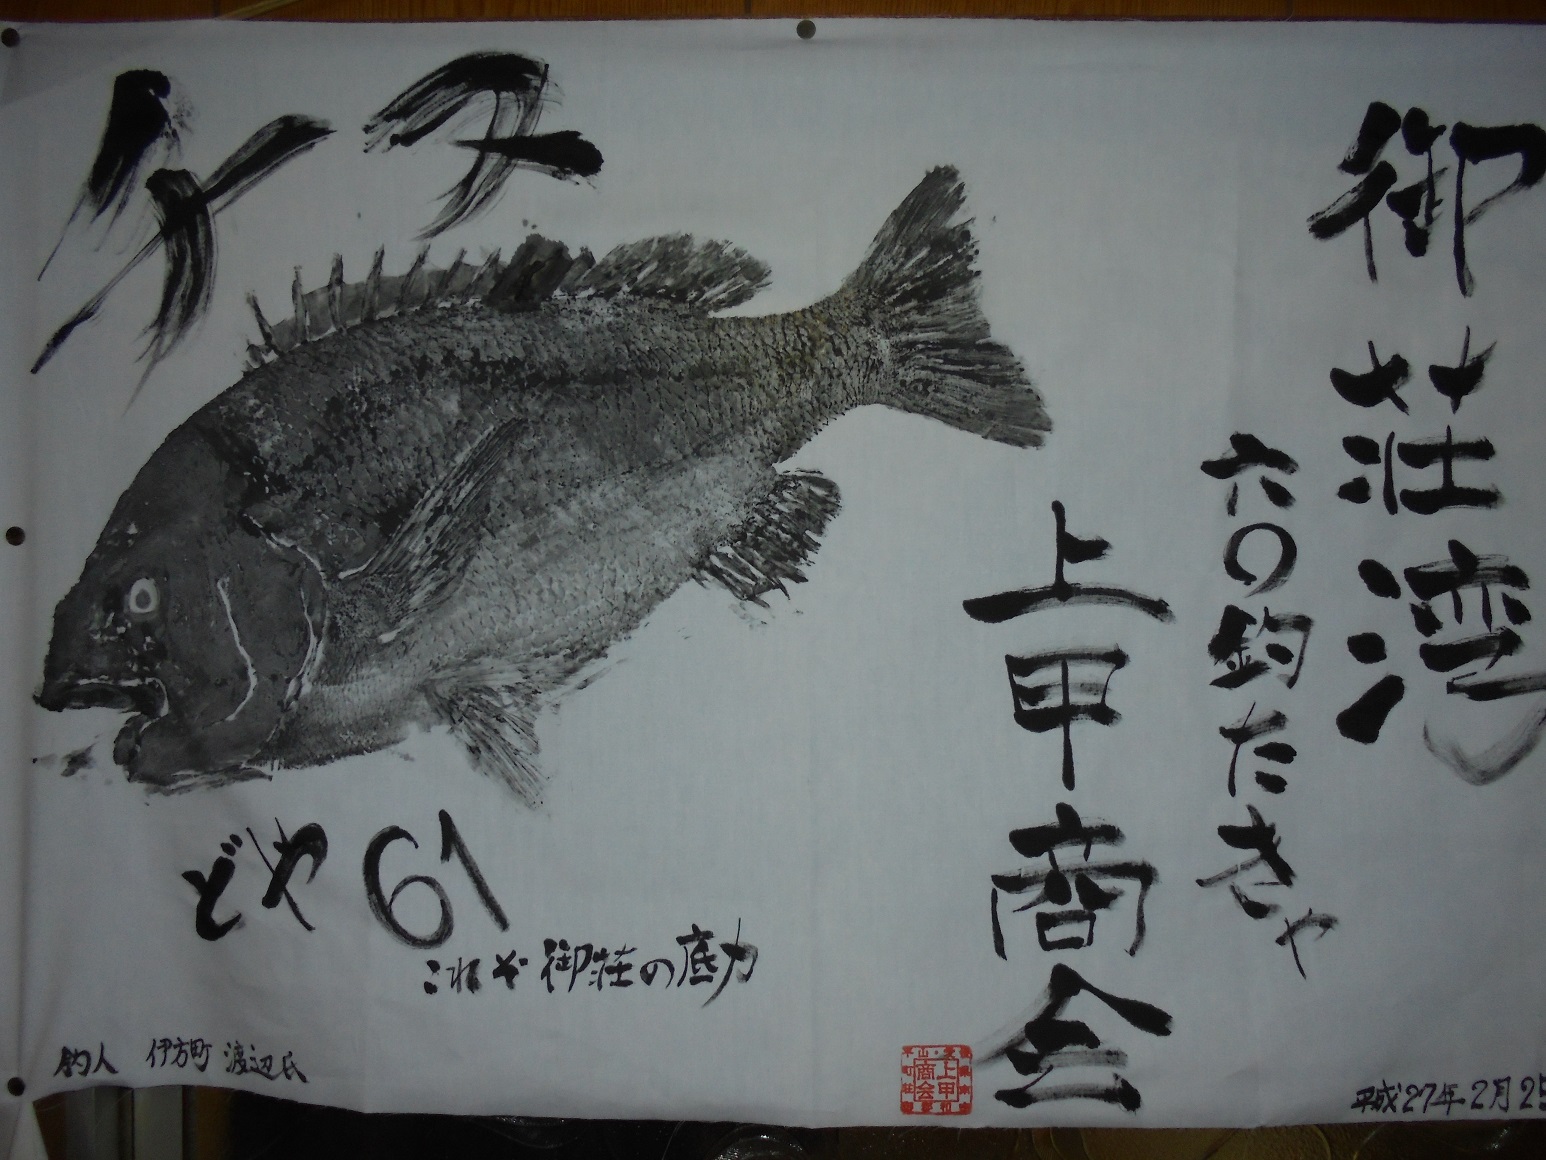 御荘湾
六〇釣たきゃ
上甲商会
どや61
これぞ御荘の底力
釣人 伊方町 渡辺氏
平成27年2月25
上甲
商会